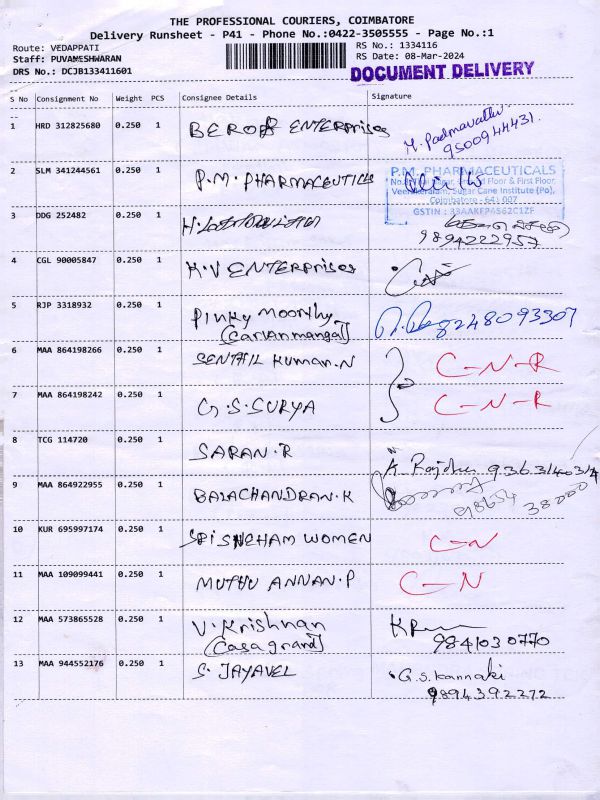 THE PROFESSIONAL COURIERS, COIMBATORE
Delivery Runsheet - P41 - Phone No.:0422-3505555 - Page No.:1
Route: VEDAPPATI
RS No.: 1334116
Staff: PUVAMESHWARAN
RS Date: 08-Mar-2024
DRS No.: DCJB133411601
DOCUMENT DELIVERY
S No Consignment No Weight PCS Consignee Details Signature
1 HRD 312825680 0.250 1 ENTERPRISES M. Padmavathi
9500944431.
2 SLM 341244561 0.250 1 P.M. PHARMACEUTICALS
P.M. PHARMACEUTICALS
Floor & First Floor,
Sugar Cane Institute (Po),
Coimbatore - 641 007
GSTIN : 33AAKFP4562C1ZF
3 DDG 252482 0.250 1
9894222957
4 CGL 90005847 0.250 1 K.V ENTERPRISES
5 RJP 3318932 0.250 1 Pinky Moorthy 8248093307
6 MAA 864198266 0.250 1 SENTHIL Kumar.N C-N-R
7 MAA 864198242 0.250 1 G.S.SURYA C-N-R
8 TCG 114720 0.250 1 SARAN.R
9 MAA 864922955 0.250 1 BALACHANDRAN.K
10 KUR 695997174 0.250 1 WOMEN C-N
11 MAA 109099441 0.250 1 MUTHU ANNAN.P C-N
12 MAA 573865528 0.250 1 V. Krishnan
(Casagrand) 9841030770
13 MAA 944552176 0.250 1 S. JAYAVEL G.S. Kannaki
9894392272